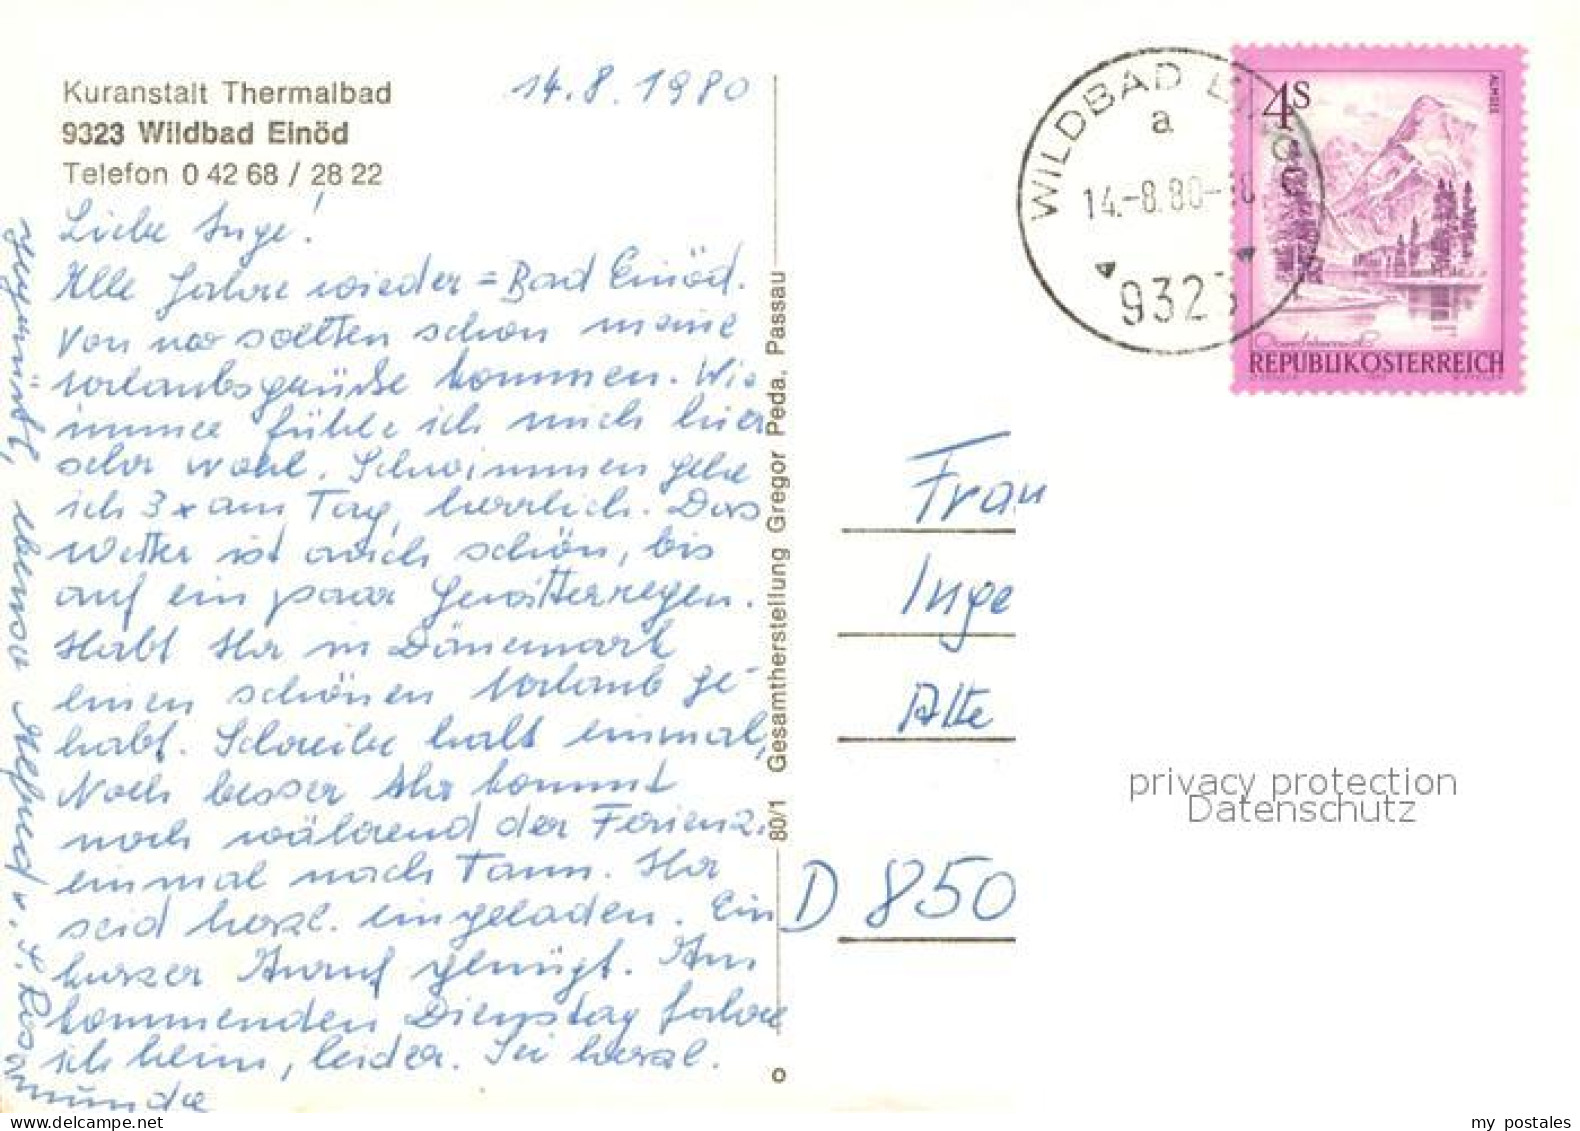 Kuranstalt Thermalbad
9323 Wildbad Einöd
Telefon 0 42 68 / 28 22
14.8.1980
Liebe Inge!
Alle Jahre wieder = Bad Einöd.
Von wo sollten schon meine
Urlaubsgrüße kommen. Wie
immer fühle ich mich hier
sehr wohl. Schwimmen gehe
ich 3x am Tag, herrlich. Das
Wetter ist auch schön, bis
auf ein paar Gewitterregen.
Habt Ihr in Dänemark
einen schönen Urlaub ge-
habt. Schreibe halt einmal,
Noch besser Ihr kommt
noch während der Ferienz.
einmal nach Tann. Ihr
seid herzl. eingeladen. Ein
kurzer Anruf genügt. Am
kommenden Dienstag fahre
ich heim, leider. Sei herzl.
gegrüßt, ebenso Helmut v. d. Ros
amunde
80/1 Gesamtherstellung Gregor Peda, Passau
WILDBAD EINÖD
a
14.-8.80-18
9323
4S
ALMSEE
REPUBLIK ÖSTERREICH
Frau
Inge
Alte
D 850
privacy protection
Datenschutz
my postales